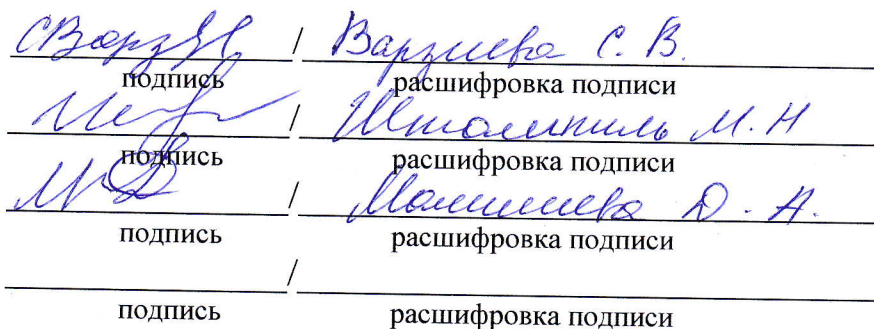 / Варзиева С. В.
подпись расшифровка подписи
/ М. Н
подпись расшифровка подписи
/ Д. А.
подпись расшифровка подписи
/
подпись расшифровка подписи